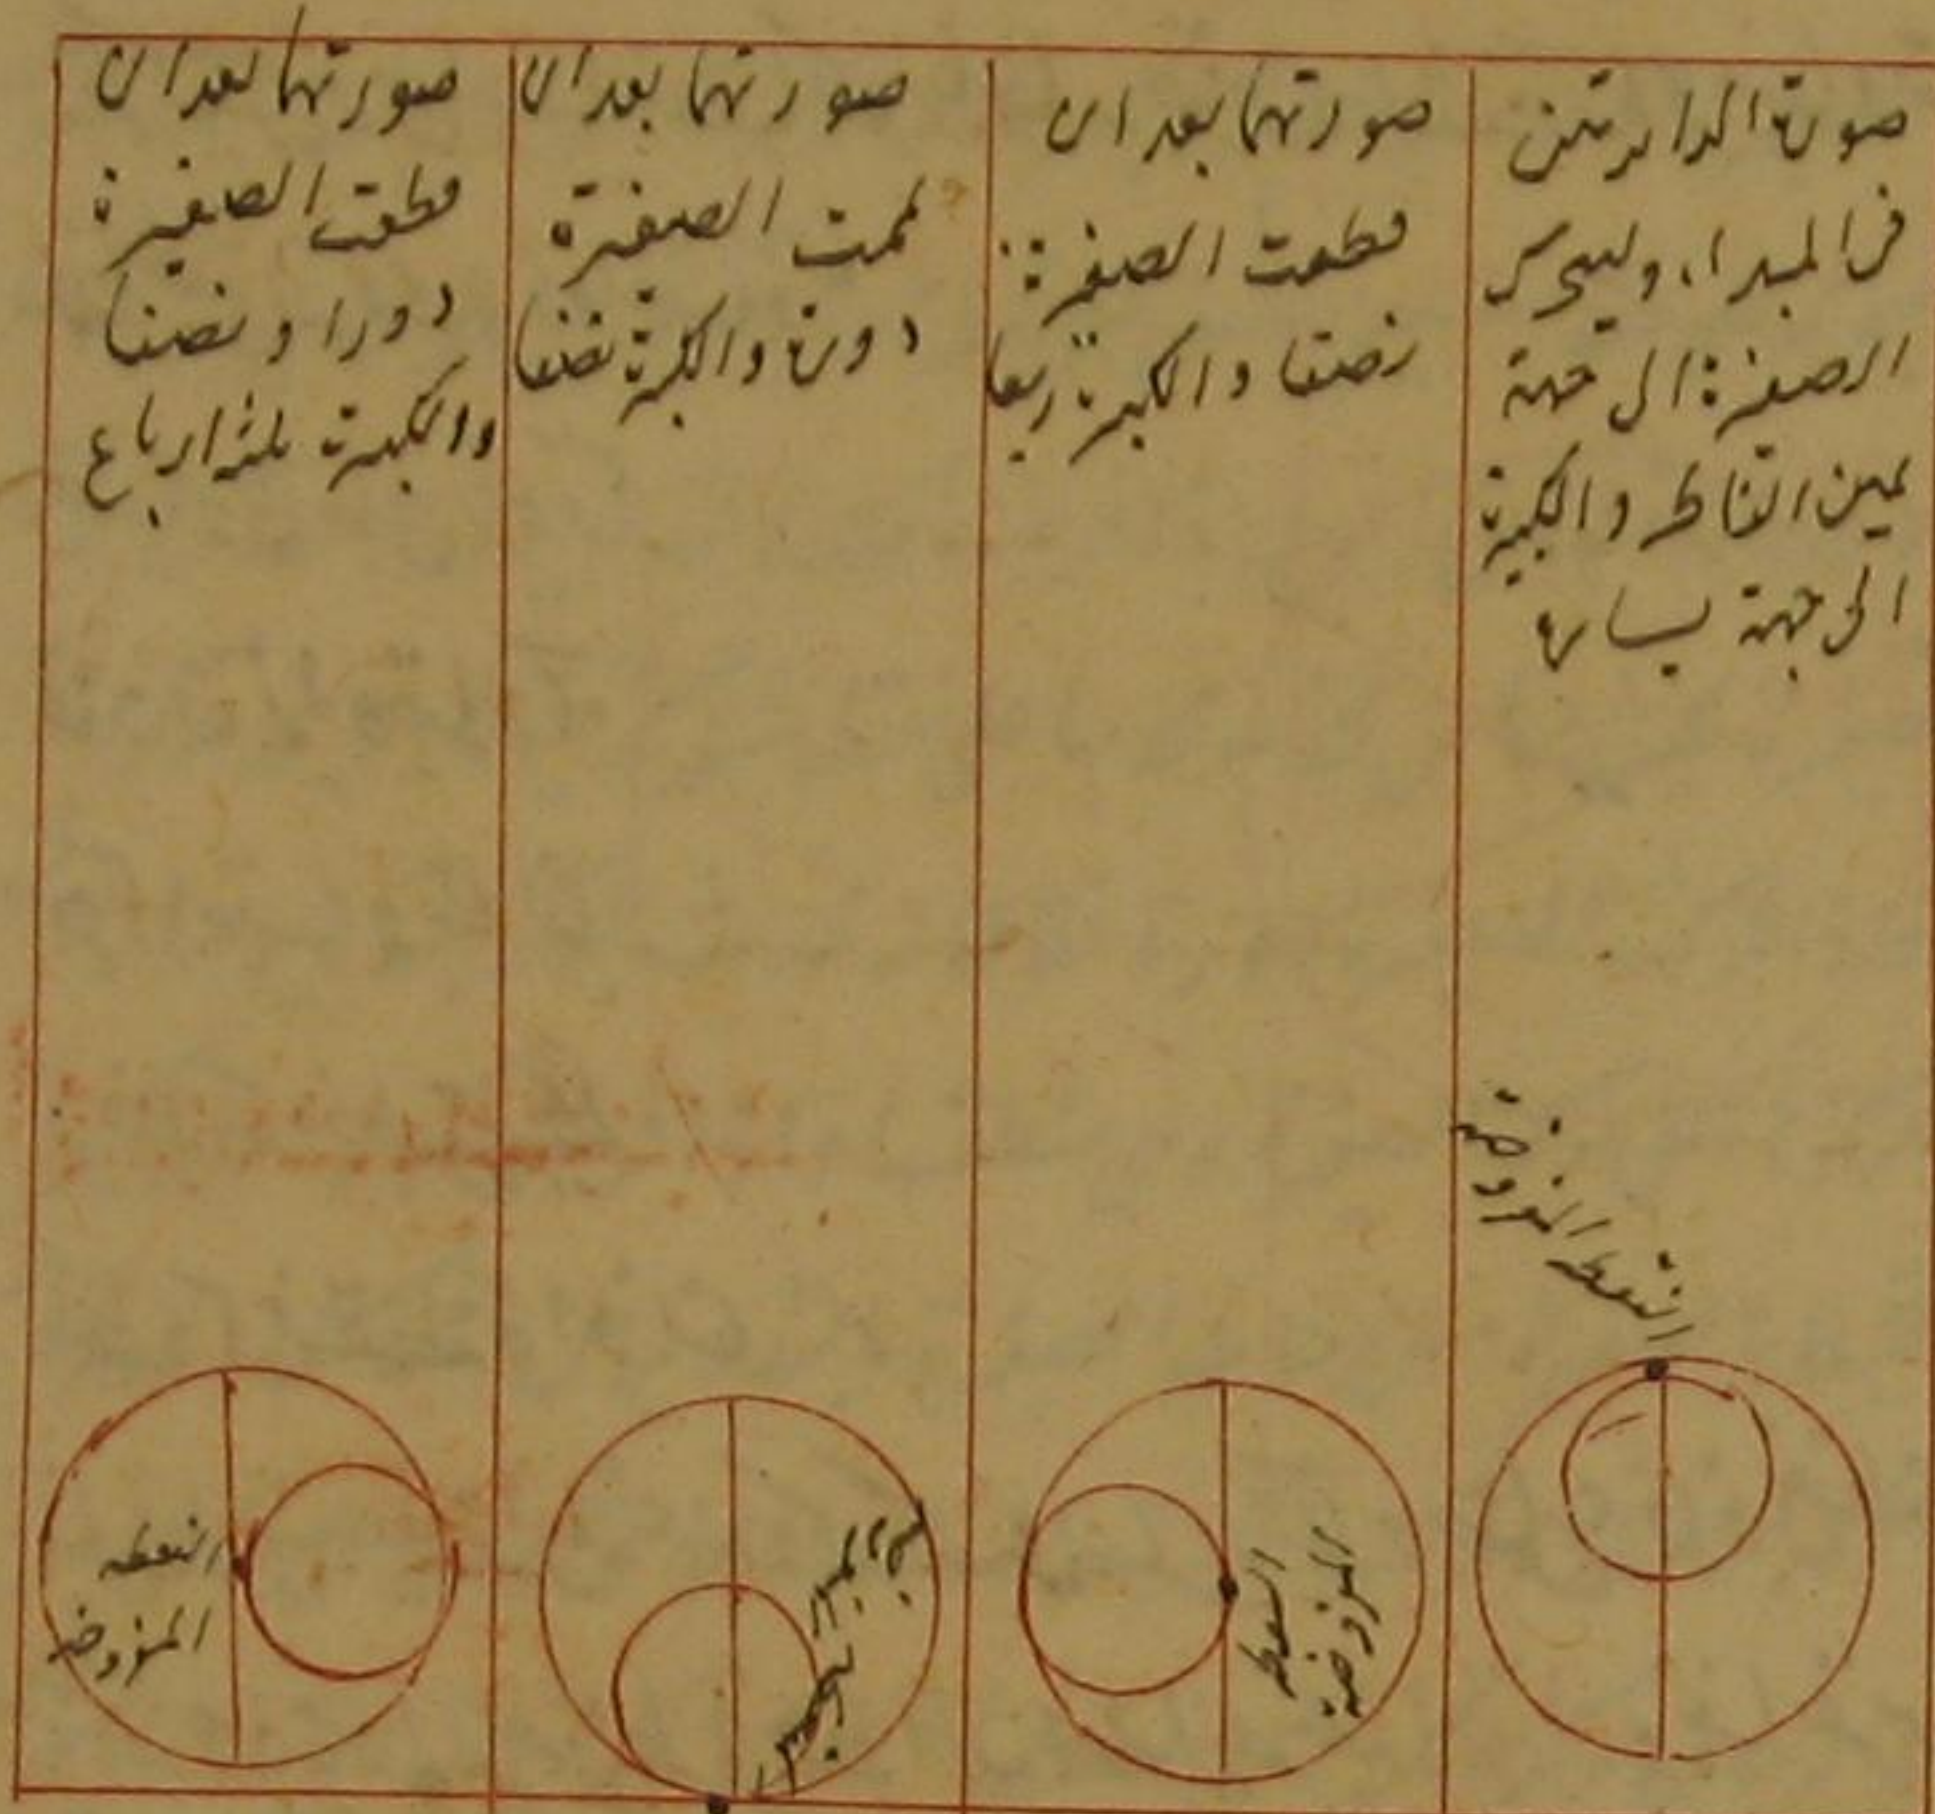 صورة الدايرتين
في المبدا، وليتحرك
الصغيرة الى جهة
يمين الناظر والكبيرة
الى جهة يساره
النقطه المفروضة
صورتهما بعد ان
قطعت الصغيرة
نصفا والكبيرة ربعا
النقطه
المفروضة
صورتهما بعد ان
تممت الصغيرة
دورة والكبيرة نصفا
صورتهما بعد ان
قطعت الصغيرة
دورا ونصفا
والكبيرة ثلثه ارباع
النقطه
المفروضه